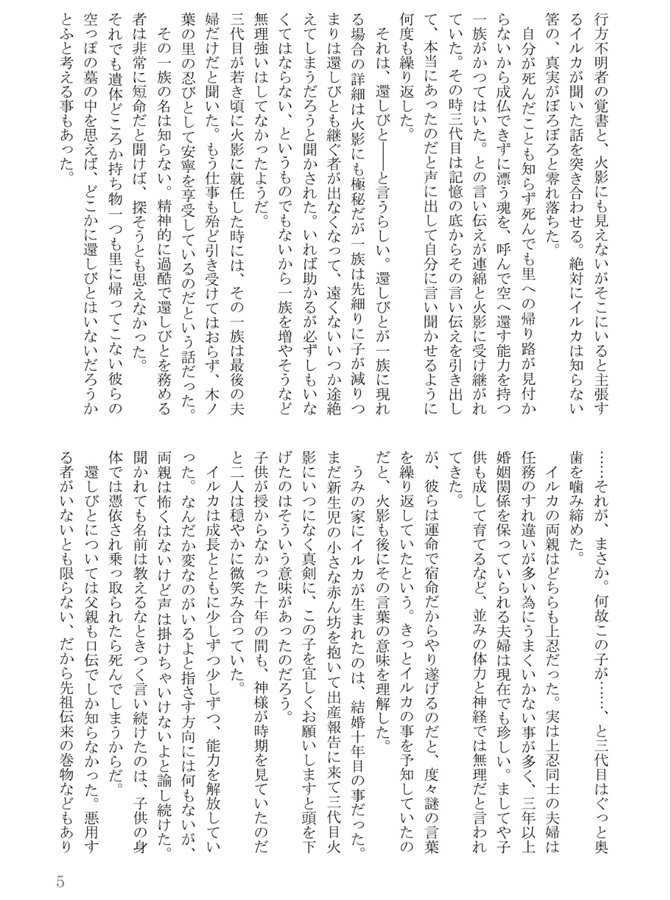 行方不明者の覚書と、火影にも見えないがそこにいると主張す
るイルカが聞いた話を突き合わせる。絶対にイルカは知らない
筈の、真実がぽろぽろと零れ落ちた。
　自分が死んだことも知らず死んでも里への帰り路が見付か
らないから成仏できずに漂う魂を、呼んで空へ還す能力を持つ
一族がかつてはいた。との言い伝えが連綿と火影に受け継がれ
ていた。その時三代目は記憶の底からその言い伝えを引き出し
て、本当にあったのだと声に出して自分に言い聞かせるように
何度も繰り返した。
　それは、還しびと──と言うらしい。還しびとが一族に現れ
る場合の詳細は火影にも極秘だが一族は先細りに子が減りつ
まりは還しびとも継ぐ者が出なくなって、遠くないいつか途絶
えてしまうだろうと聞かされた。いれば助かるが必ずしもいな
くてはならない、というものでもないから一族を増やそうなど
無理強いはしてなかったようだ。
三代目が若き頃に火影に就任した時には、その一族は最後の夫
婦だけだと聞いた。もう仕事も殆ど引き受けてはおらず、木ノ
葉の里の忍びとして安寧を享受しているのだという話だった。
　その一族の名は知らない。精神的に過酷で還しびとを務める
者は非常に短命だと聞けば、探そうとも思えなかった。
それでも遺体どころか持ち物一つも里に帰ってこない彼らの
空っぽの墓の中を思えば、どこかに還しびとはいないだろうか
とふと考える事もあった。
……それが、まさか。何故この子が……、と三代目はぐっと奥
歯を噛み締めた。
　イルカの両親はどちらも上忍だった。実は上忍同士の夫婦は
任務のすれ違いが多い為にうまくいかない事が多く、三年以上
婚姻関係を保っていられる夫婦は現在でも珍しい。ましてや子
供も成して育てるなど、並みの体力と神経では無理だと言われ
てきた。
が、彼らは運命で宿命だからやり遂げるのだと、度々謎の言葉
を繰り返していたという。きっとイルカの事を予知していたの
だと、火影も後にその言葉の意味を理解した。
　うみの家にイルカが生まれたのは、結婚十年目の事だった。
まだ新生児の小さな赤ん坊を抱いて出産報告に来て三代目火
影にいつになく真剣に、この子を宜しくお願いしますと頭を下
げたのはそういう意味があったのだろう。
子供が授からなかった十年の間も、神様が時期を見ていたのだ
と二人は穏やかに微笑み合っていた。
　イルカは成長とともに少しずつ少しずつ、能力を解放してい
った。なんだか変なのがいるよと指さす方向には何もないが、
両親は怖くはないけど声は掛けちゃいけないよと諭し続けた。
聞かれても名前は教えるなときつく言い続けたのは、子供の身
体では憑依され乗っ取られたら死んでしまうからだ。
　還しびとについては父親も口伝でしか知らなかった。悪用す
る者がいないとも限らない、だから先祖伝来の巻物などもあり
5